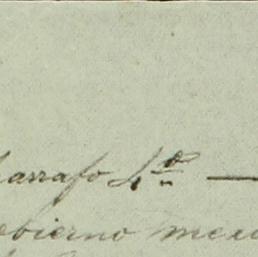 arrafo 4º —
obierno mexi